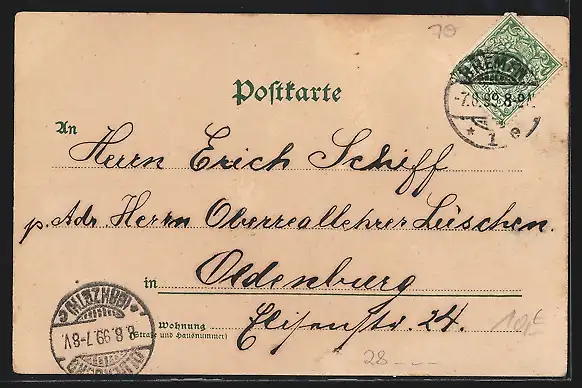 70
BREMEN
-7.8.99.8-9N.
* 1 e
Postkarte
An
Herrn Erich Schiff
p. Adr. Herrn Oberreallehrer Lüschen.
in Oldenburg
Wohnung
(Straße und Hausnummer)
Elisenstr. 24.
8.8.99.7-8V.
OLDENBURG
28